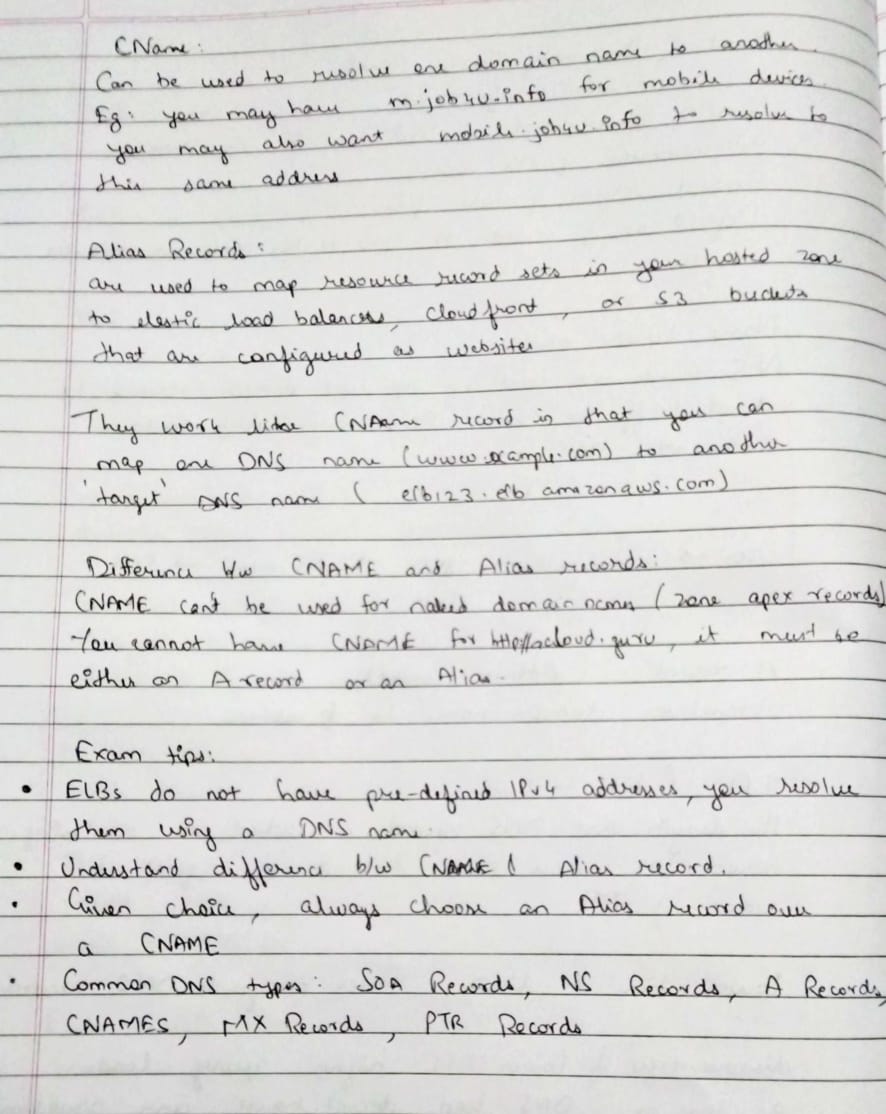 CName:
Can be used to resolve one domain name to another.
Eg: you may have m.job4u.info for mobile devices.
you may also want mobile.job4u.info to resolve to
this same address
Alias Records:
are used to map resource record sets in your hosted zone
to elastic load balancers, Cloud front, or S3 buckets
that are configured as websites
They work like CNAame record in that you can
map one DNS name (www.example.com) to another
'target' DNS name ( elb123.elb amazonaws.com)
Difference b/w CNAME and Alias records:
CNAME can't be used for naked domain names (zone apex records)
You cannot have CNAME for http//acloud.guru, it must be
either an A record or an Alias.
Exam tips:
• ELBs do not have pre-defined IPv4 addresses, you resolve
them using a DNS name.
• Understand difference b/w CNAME & Alias record.
• Given choice, always choose an Alias record over
a CNAME
• Common DNS types: SOA Records, NS Records, A Records,
CNAMES, MX Records, PTR Records